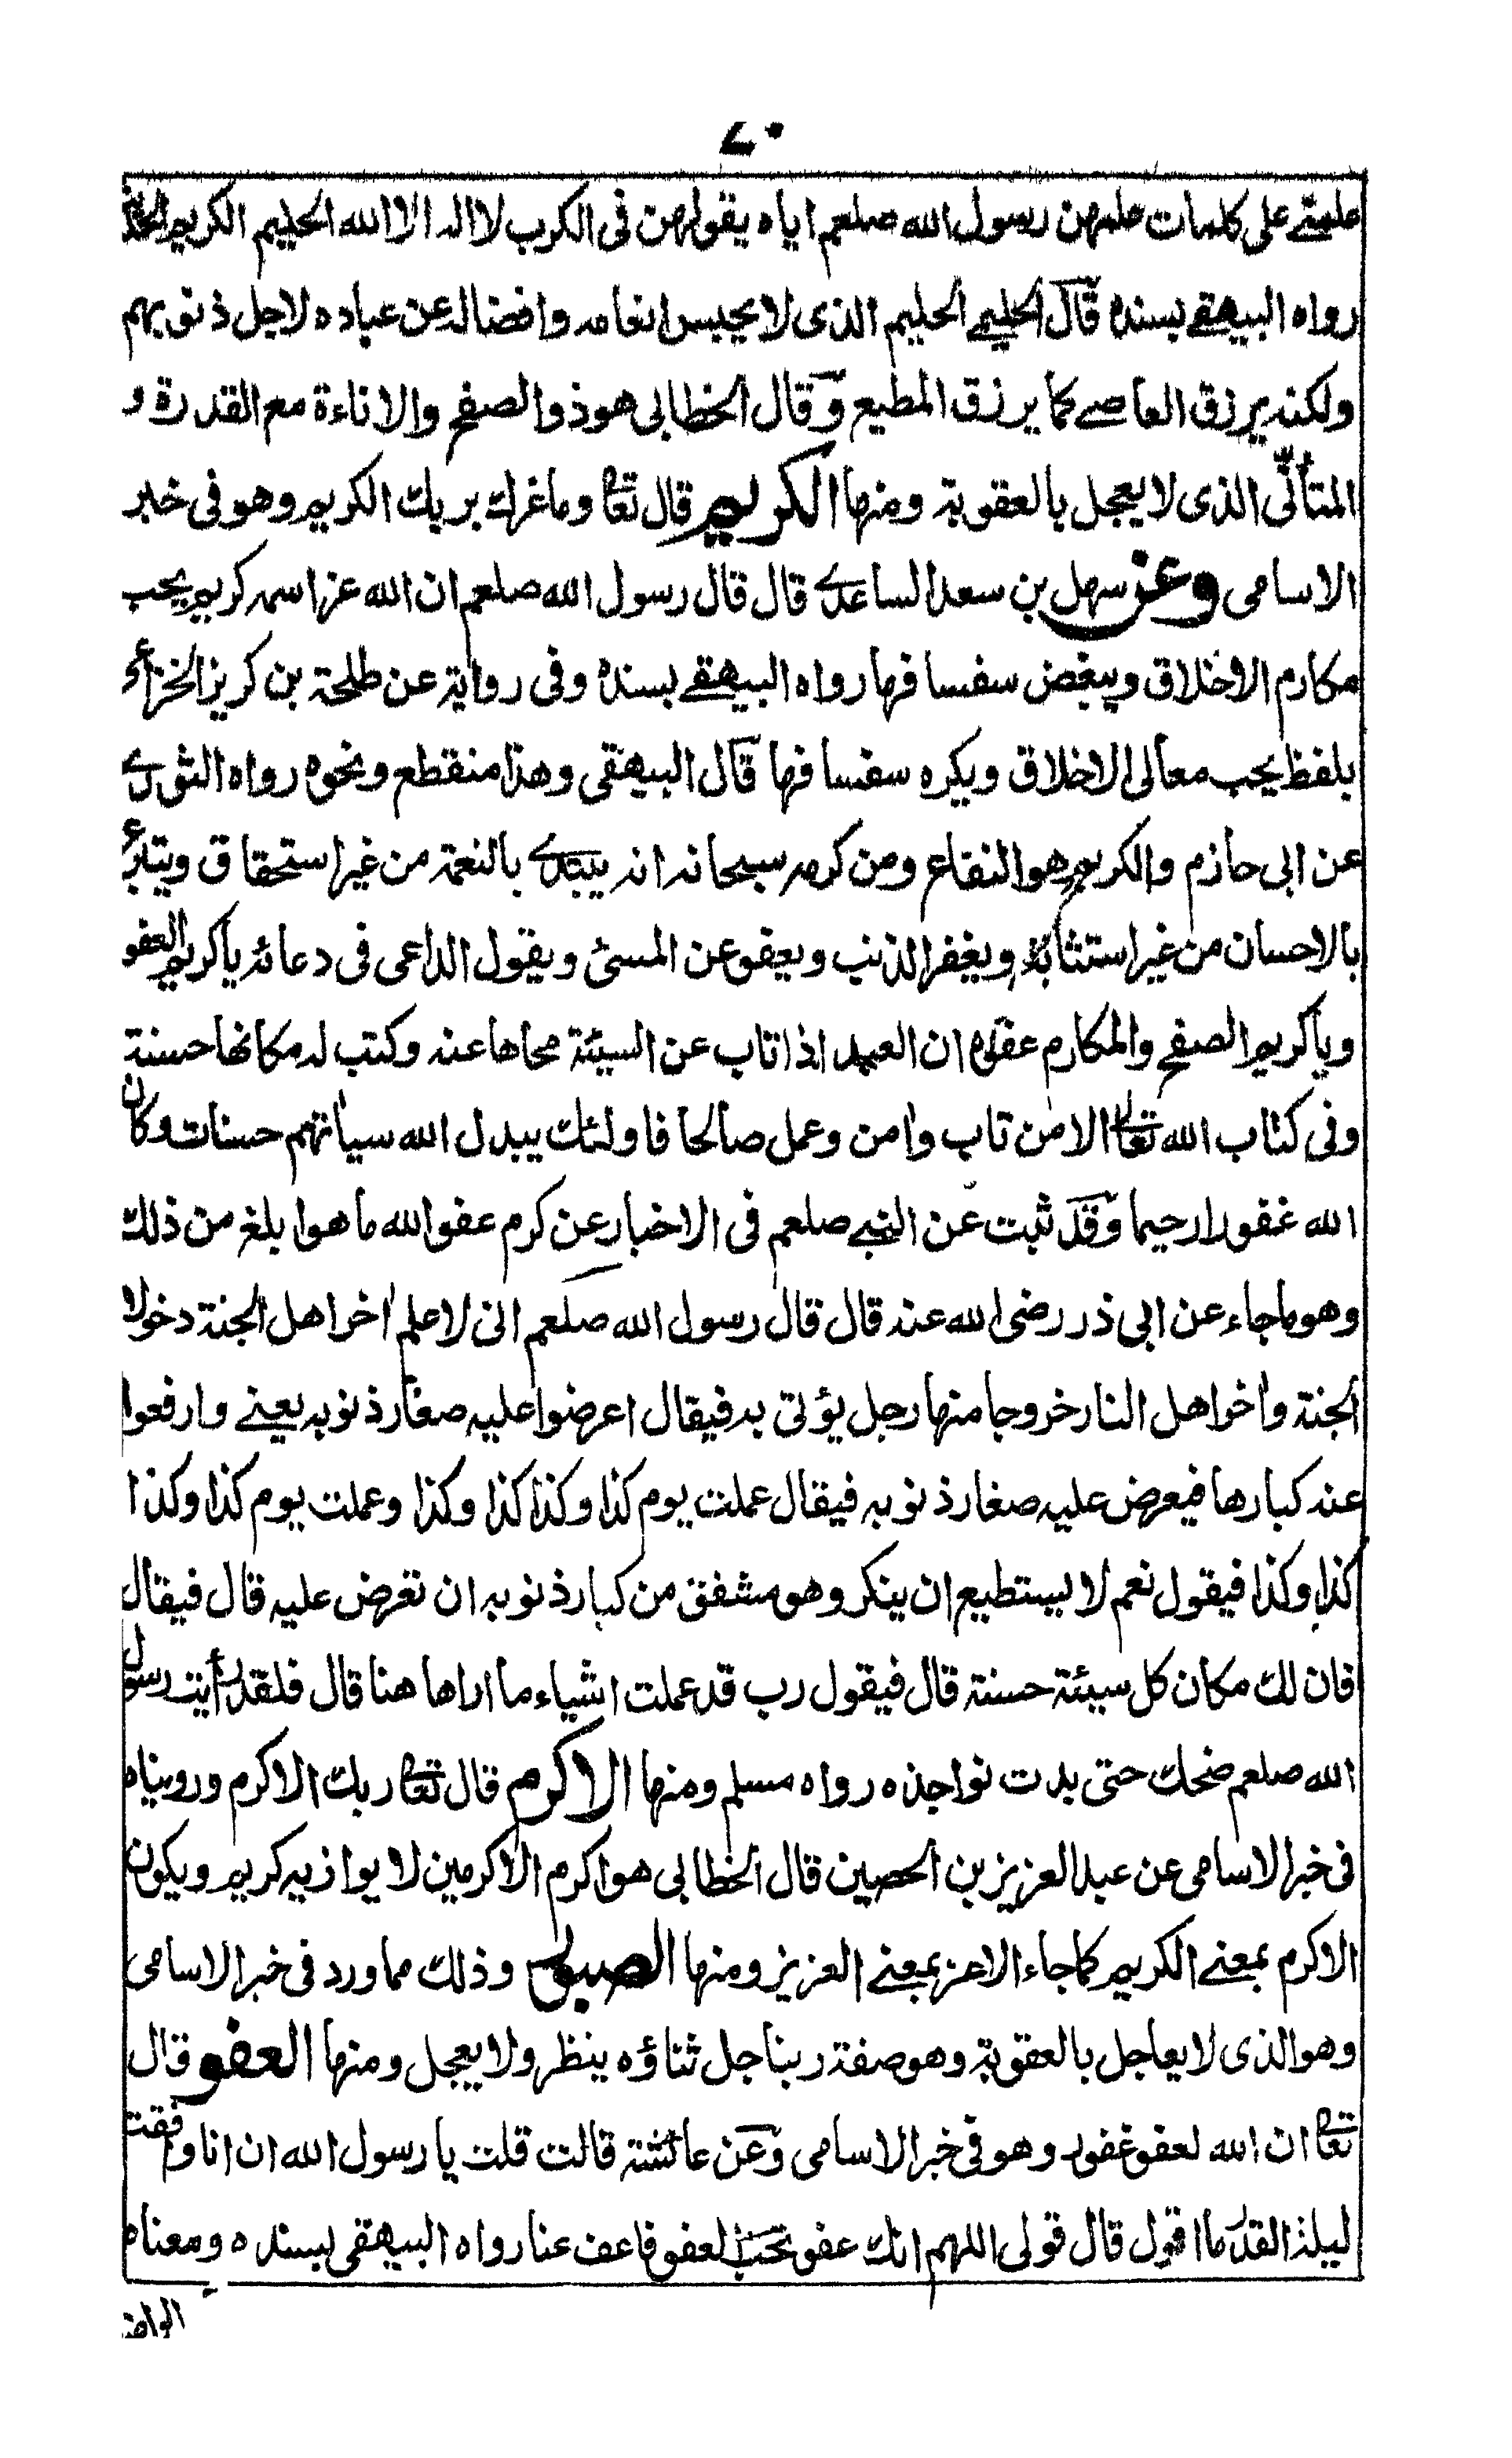 ٧٠
علمتنے علی كلمات علمهن رسول الله صلعم اياه يقولهن فی الكرب لا اله الا الله الحليم الكريم
رواه البيهقے بسنده قال الحليمے الحليم الذی لا يحبس انعامه وافضاله عن عباده لاجل ذنوبهم
ولكنه يرزق العاصے كما يرزق المطيع وقال الخطابی هو ذو الصفح والاناءة مع القدرة و
المتأنّی الذی لا يعجل بالعقوبة ومنها الكريم قال تعا وما غرك بربك الكريم وهو فی خبر
الاسامی وعن سهل بن سعد الساعدے قال قال رسول الله صلعم ان الله عز اسمه كريم يحب
مكارم الاخلاق ويبغض سفسافها رواه البيهقے بسنده وفی رواية عن طلحة بن كريز الخزاعے
بلفظ يحب معالی الاخلاق ويكره سفسافها قال البيهقی وهذا منقطع ونحوه رواه الثورے
عن ابی حازم والكريم هو النفاع ومن كرمه سبحانه انه يبتدے بالنعمة من غير استحقاق ويتبرع
بالاحسان من غير استثابة ويغفر الذنب ويعفو عن المسئ ويقول الداعی فی دعائه يا كريم العفو
ويا كريم الصفح والمكارم عفوه ان العبد اذا تاب عن السيئة محاها عنه وكتب له مكانها حسنة
وفی كتاب الله تعا الا من تاب وامن وعمل صالحا فاولئك يبدل الله سياتهم حسنات وكان
الله غفورا رحيما وقد ثبت عن النبے صلعم فی الاخبار عن كرم عفو الله ما هو ابلغ من ذلك
وهو ما جاء عن ابی ذر رضی الله عنه قال قال رسول الله صلعم انی لاعلم اخر اهل الجنة دخولا
الجنة واخر اهل النار خروجا منها رجل يؤتی به فيقال اعرضوا عليه صغار ذنوبه يعنے وارفعوا
عنه كبارها فيعرض عليه صغار ذنوبه فيقال عملت يوم كذا وكذا كذا وكذا وعملت يوم كذا وكذا
كذا وكذا فيقول نعم لا يستطيع ان ينكر وهو مشفق من كبار ذنوبه ان تعرض عليه قال فيقال
فان لك مكان كل سيئة حسنة قال فيقول رب قد عملت اشياء ما اراها هنا قال فلقد رأيت رسول
الله صلعم ضحك حتی بدت نواجذه رواه مسلم ومنها الاكرم قال تعا ربك الاكرم ورويناه
فی خبر الاسامی عن عبد العزيز بن الحصين قال الخطابی هو اكرم الاكرمين لا يوازيه كريم ويكون
الاكرم بمعنے الكريم كما جاء الاعز بمعنے العزيز ومنها الصبور وذلك مما ورد فی خبر الاسامی
وهو الذی لا يعاجل بالعقوبة وهو صفة ربنا جل ثناؤه ينظر ولا يعجل ومنها العفو قال
تعا ان الله لعفو غفور وهو فی خبر الاسامی وعن عائشة قالت قلت يا رسول الله ان انا وافقت
ليلة القدر ما اقول قال قولی اللهم انك عفو تحب العفو فاعف عنا رواه البيهقی بسنده ومعناه